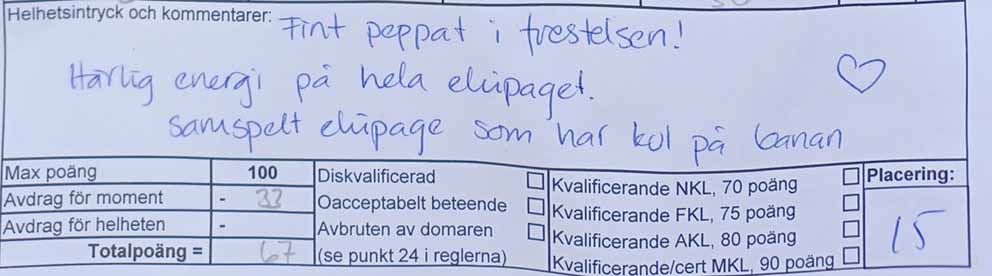 Helhetsintryck och kommentarer: Fint peppat i frestelsen!
Härlig energi på hela ekipaget.
Samspelt ekipage som har kol på banan
Max poäng 100
Avdrag för moment - 33
Avdrag för helheten -
Totalpoäng = 67
Diskvalificerad
Oacceptabelt beteende
Avbruten av domaren
(se punkt 24 i reglerna)
Kvalificerande NKL, 70 poäng
Kvalificerande FKL, 75 poäng
Kvalificerande AKL, 80 poäng
Kvalificerande/cert MKL, 90 poäng
Placering:
15